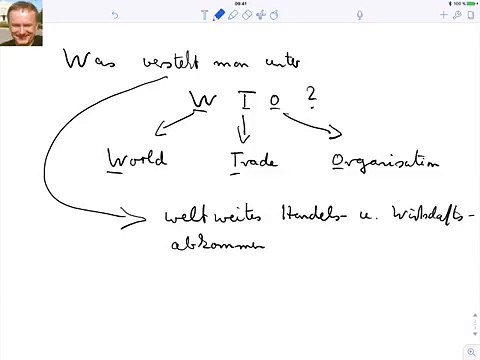 09:41
100 %
T
Was versteht man unter
W T O ?
World Trade Organisation
weltweites Handels- u. Wirtschafts-
abkommen